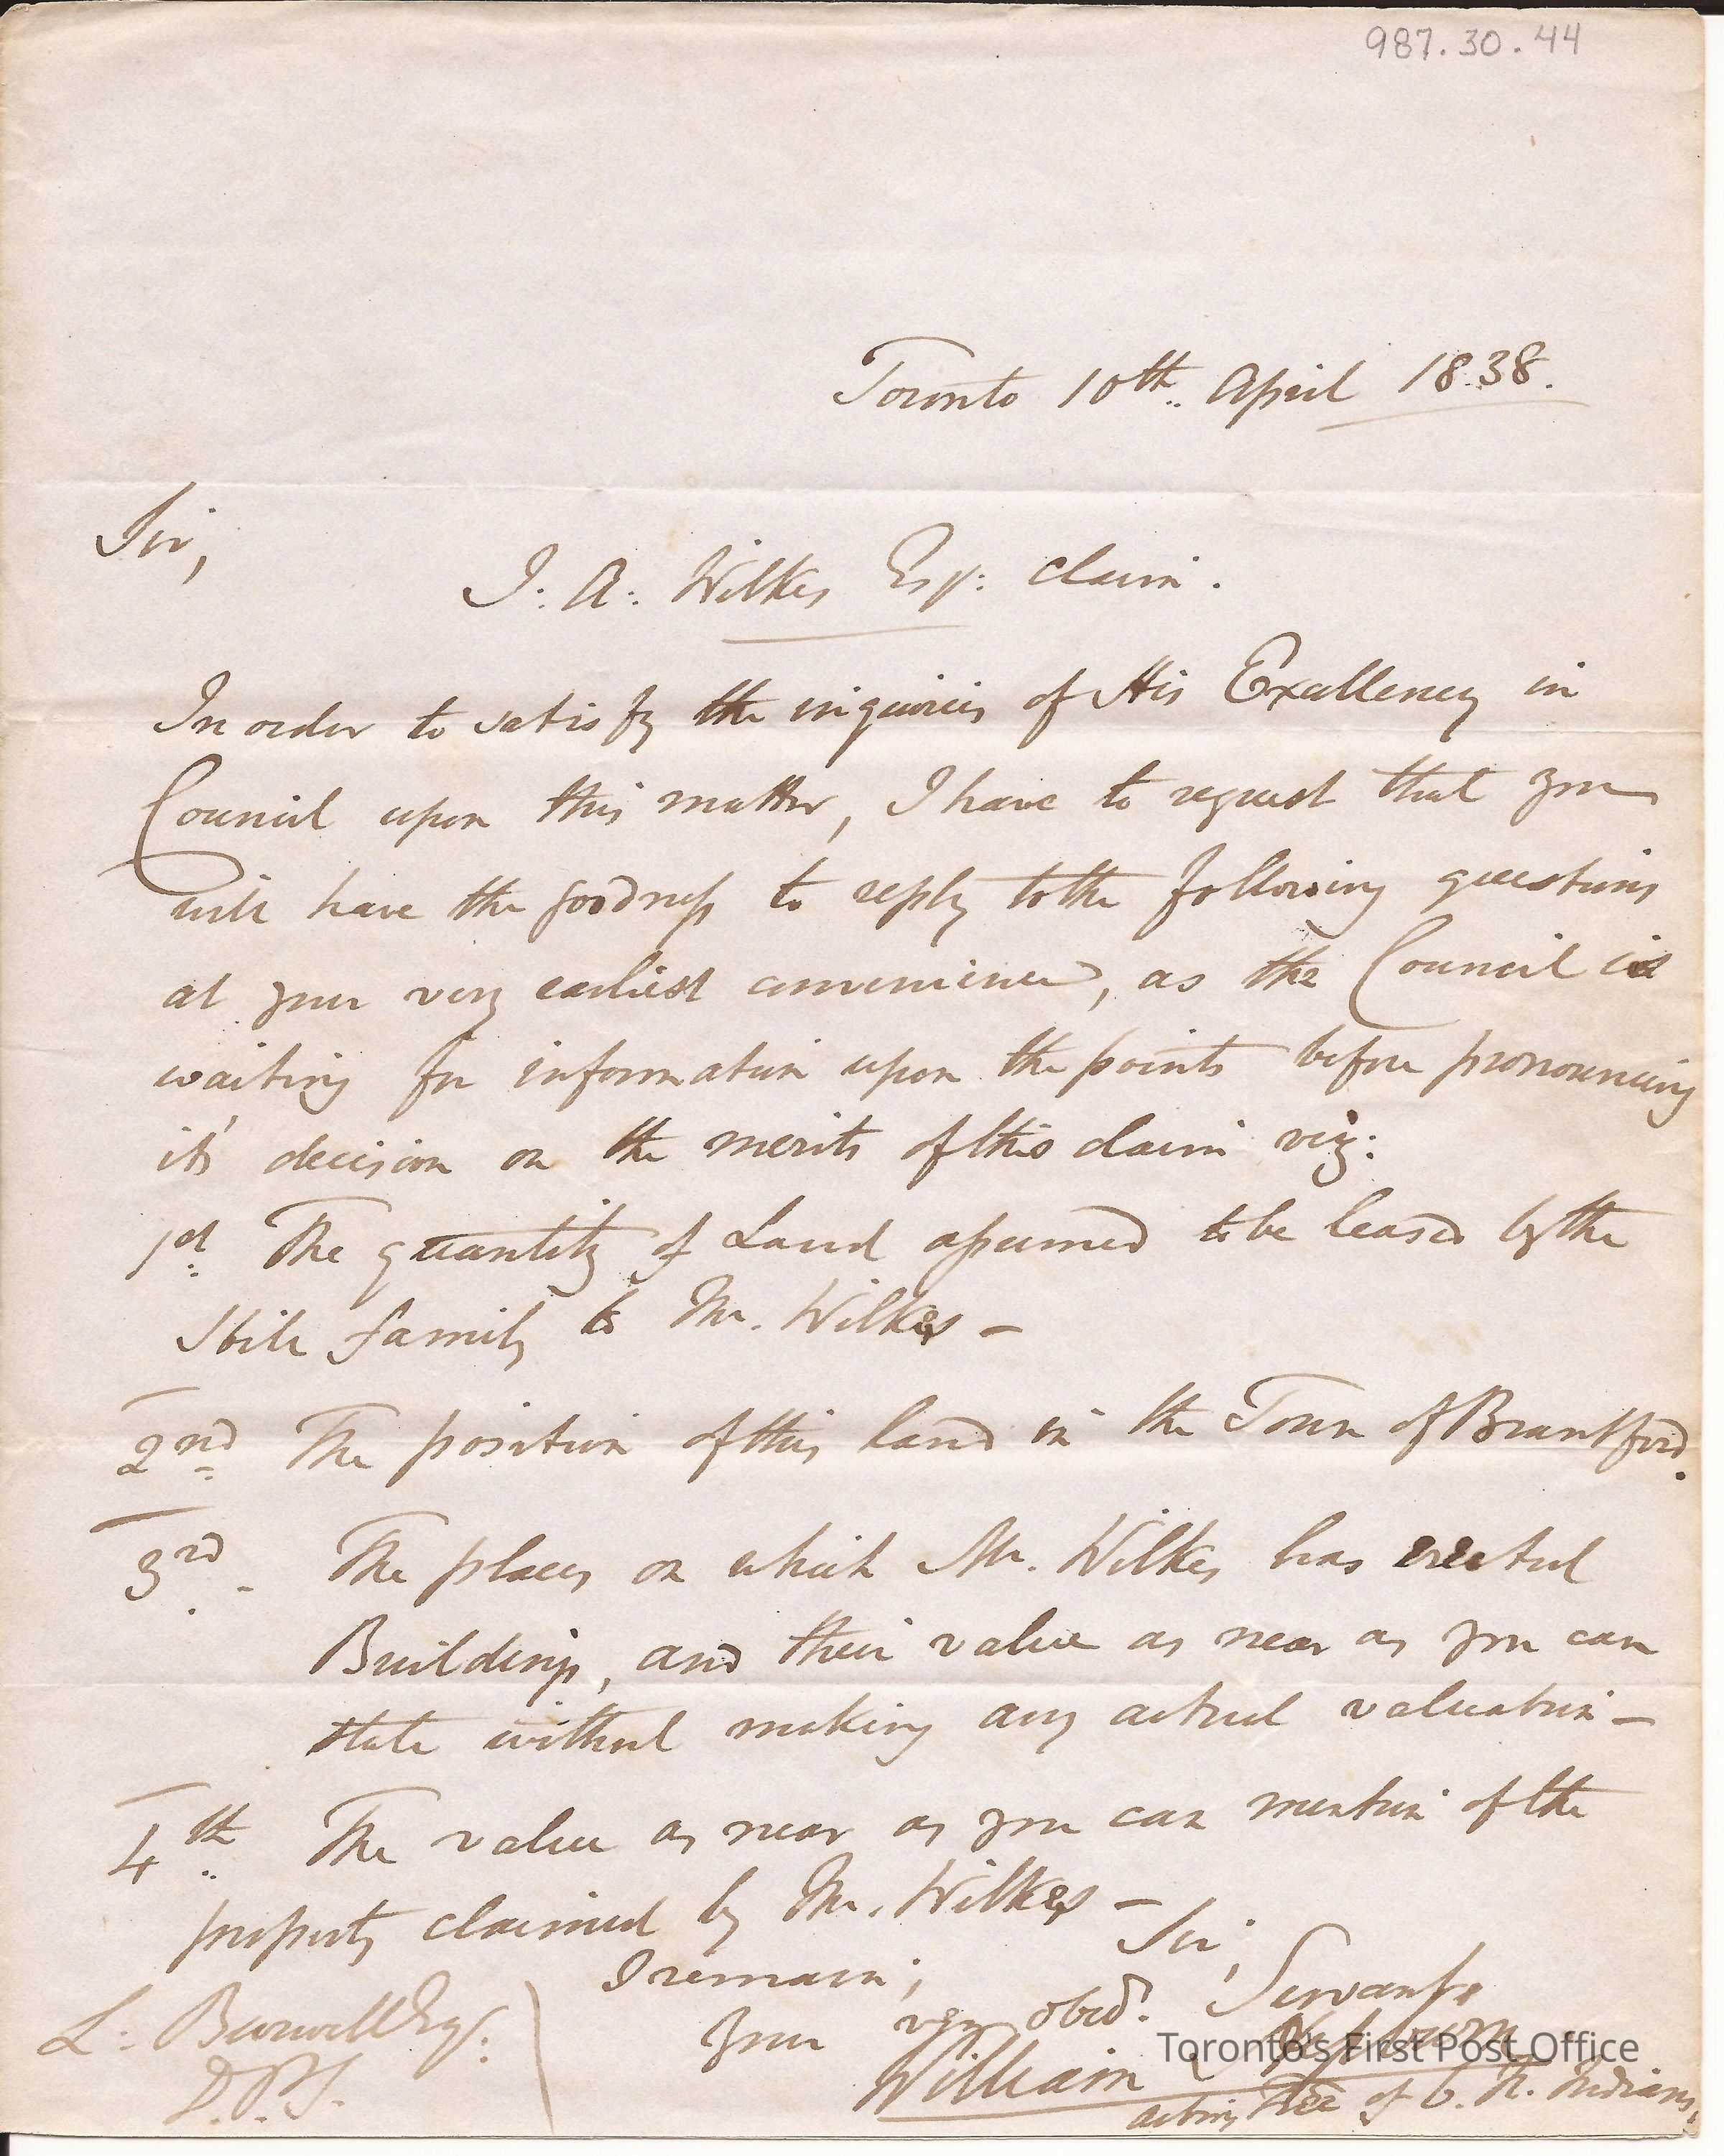 987.30.44
Toronto 10th April 1838.
Sir,
J. A. Wilkes Esqr. claim.
In order to satisfy the inquiries of His Excellency in
Council upon this matter, I have to request that you
will have the goodness to reply to the following questions
at your very earliest convenience, as the Council is
waiting for information upon the points before pronouncing
it's decision on the merits of this claim viz:
1st. The quantity of Land assumed to be leased by the
family to Mr. Wilkes -
2nd The position of this land in the Town of Brantford.
3rd. The places on which Mr. Wilkes has erected
Buildings, and their value as near as you can
state without making any actual valuation -
4th. The value as near as you can mention of the
property claimed by Mr. Wilkes -
I remain, Sir,
Your very obedt. Servant
L. Burwell Esqr.
D.P.S.
William Hepburn
acting Tree of 6. N. Indians.
Toronto's First Post Office